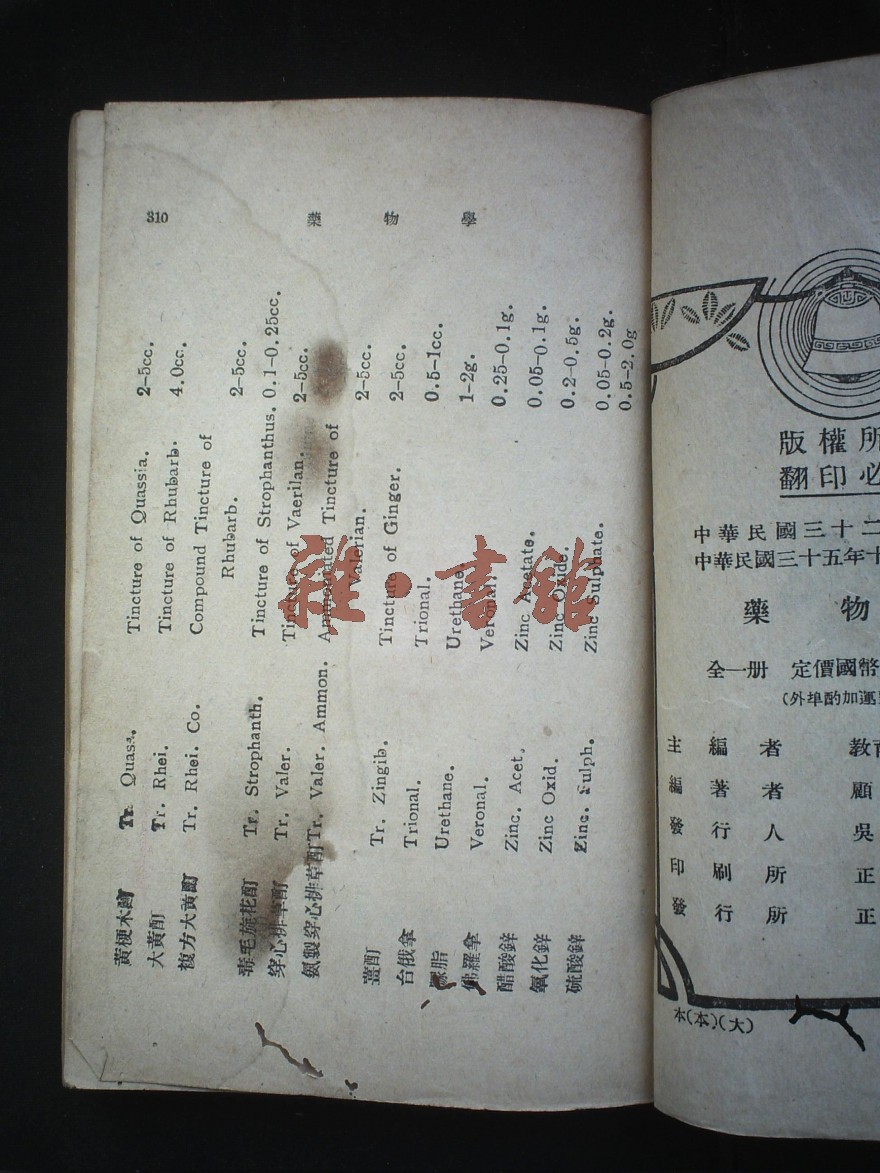 310
藥物學
黃梗木酊 Tr. Quass. Tincture of Quassia. 2-5cc.
大黃酊 Tr. Rhei. Tincture of Rhubarb. 4.0cc.
複方大黃酊 Tr. Rhei. Co. Compound Tincture of
Rhubarb. 2-5cc.
毒毛旅花酊 Tr. Strophanth. Tincture of Strophanthus. 0.1-0.25cc.
穿心排草酊 Tr. Valer. Tincture of Vaerilan. 2-5cc.
氨製穿心排草酊 Tr. Valer. Ammon. Ammoniated Tincture of
Valerian. 2-5cc.
薑酊 Tr. Zingib. Tincture of Ginger. 2-5cc.
台俄拿 Trional. Trional. 0.5-1cc.
脂 Urethane. Urethane. 1-2g.
佛羅拿 Veronal. Veronal. 0.25-0.1g.
醋酸鋅 Zinc. Acet. Zinc Acetate. 0.05-0.1g.
氧化鋅 Zinc Oxid. Zinc Oxide. 0.2-0.5g.
硫酸鋅 Zinc. Sulph. Zinc Sulphate. 0.05-0.2g.
0.5-2.0g
雜·書館
版權所
翻印必
中華民國三十二
中華民國三十五年十
藥物
全一册 定價國幣
(外埠酌加運
主編者 教育
編著者 顧
發行人 吳
印刷所 正
發行所 正
本(本)(大)